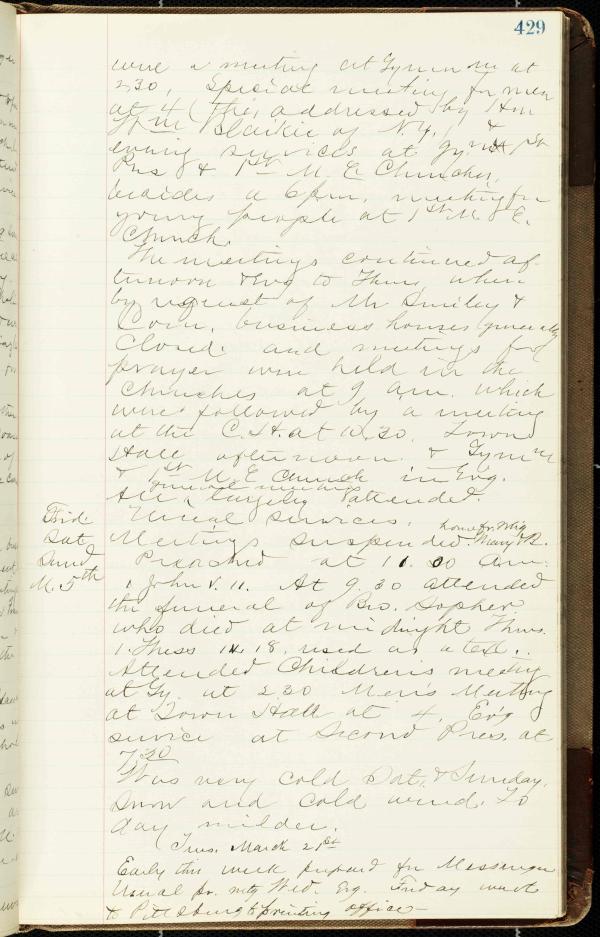 429
were a meeting at Gymnm at
2.30, Special meeting for men
at 4 (this addressed by Hon
Wm Blaikie of N.Y., &
evening services at Gym & 1st
Pres & 1st M. E. Churches,
besides a 6 p.m. meeting for
young people at 1st M. E.
Church.
The meetings continued af-
ternoon & Evg to Thurs, when
by request of Mr Smiley &
Com, business houses generally
closed and meetings for
prayer were held in the
churches at 9 a.m. which
were followed by a meeting
at the C. H. at 10.30. Town
Hall afternoon & Gymnm
& 1st M. E. Church in Evg.
All largely attended.
Frid. Usual services.
Sat Meetings suspended. home fr. Mary & B.
Sund Preached at 11.00 am.
M. 5th 1 John V. 11. At 9.30 attended
the funeral of Bro. Sopher
who died at midnight Thurs.
1. Thess 18. used as a text.
Attended Children's meeting
at Gy. at 2.30 Men's Meeting
at Town Hall at 4. Ev'g
service at Second Pres. at
7.30
Was very cold Sat. & Sunday.
Snow and cold wind. To
day milder.
Tues. March 21st
Early this week prepared for Messenger
Usual pr. mtg Wed. Evg. Friday went
to Pittsburg to printing office—